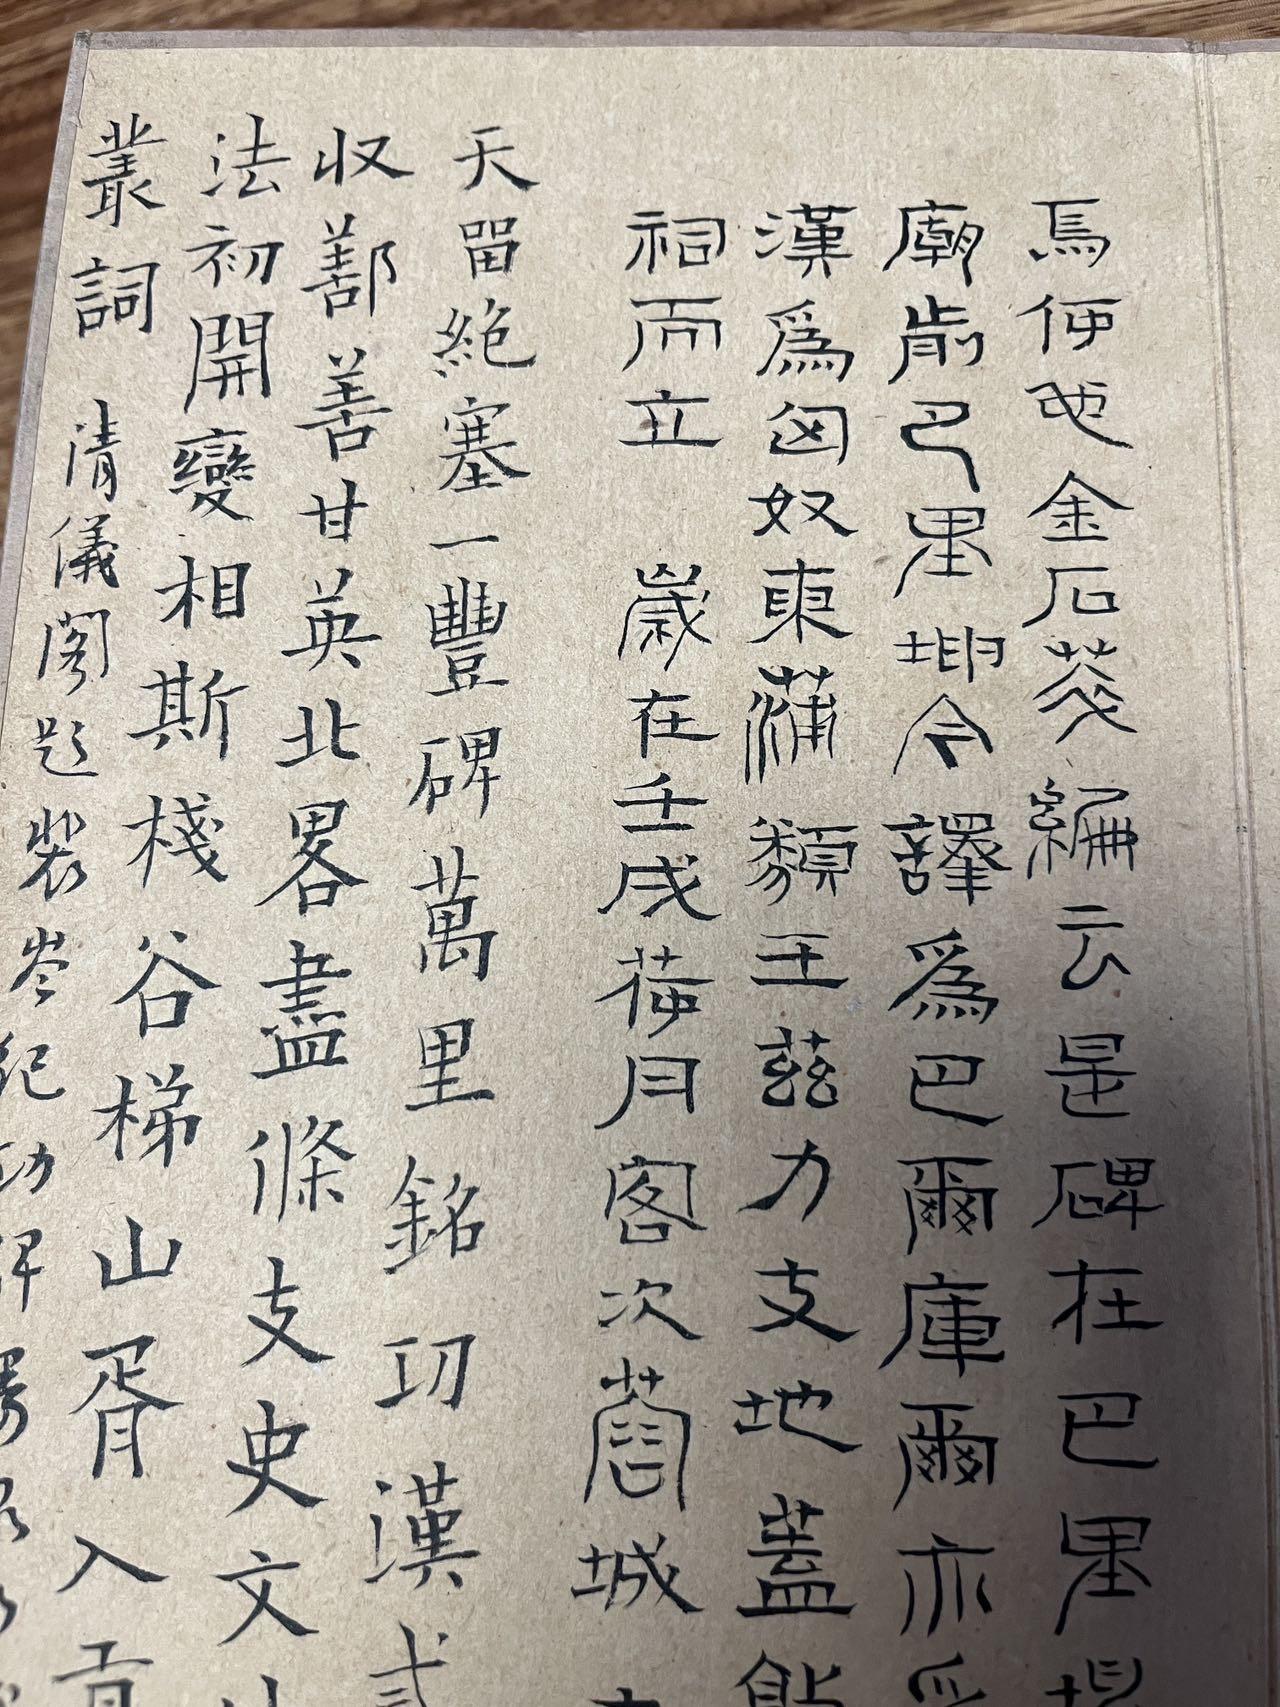 焉使地金石菼編云是碑在巴里坤
廟前巴里坤今譯為巴爾庫爾亦
漢為匈奴東蒲類王茲力支地蓋
祠而立 歲在壬戌荷月客次
天留絕塞一豐碑萬里銘功漢
收鄯善甘英北畧盡條支史文
法初開變相斯棧谷梯山胥入貢
叢詞 清儀閣題裴岑紀功碑